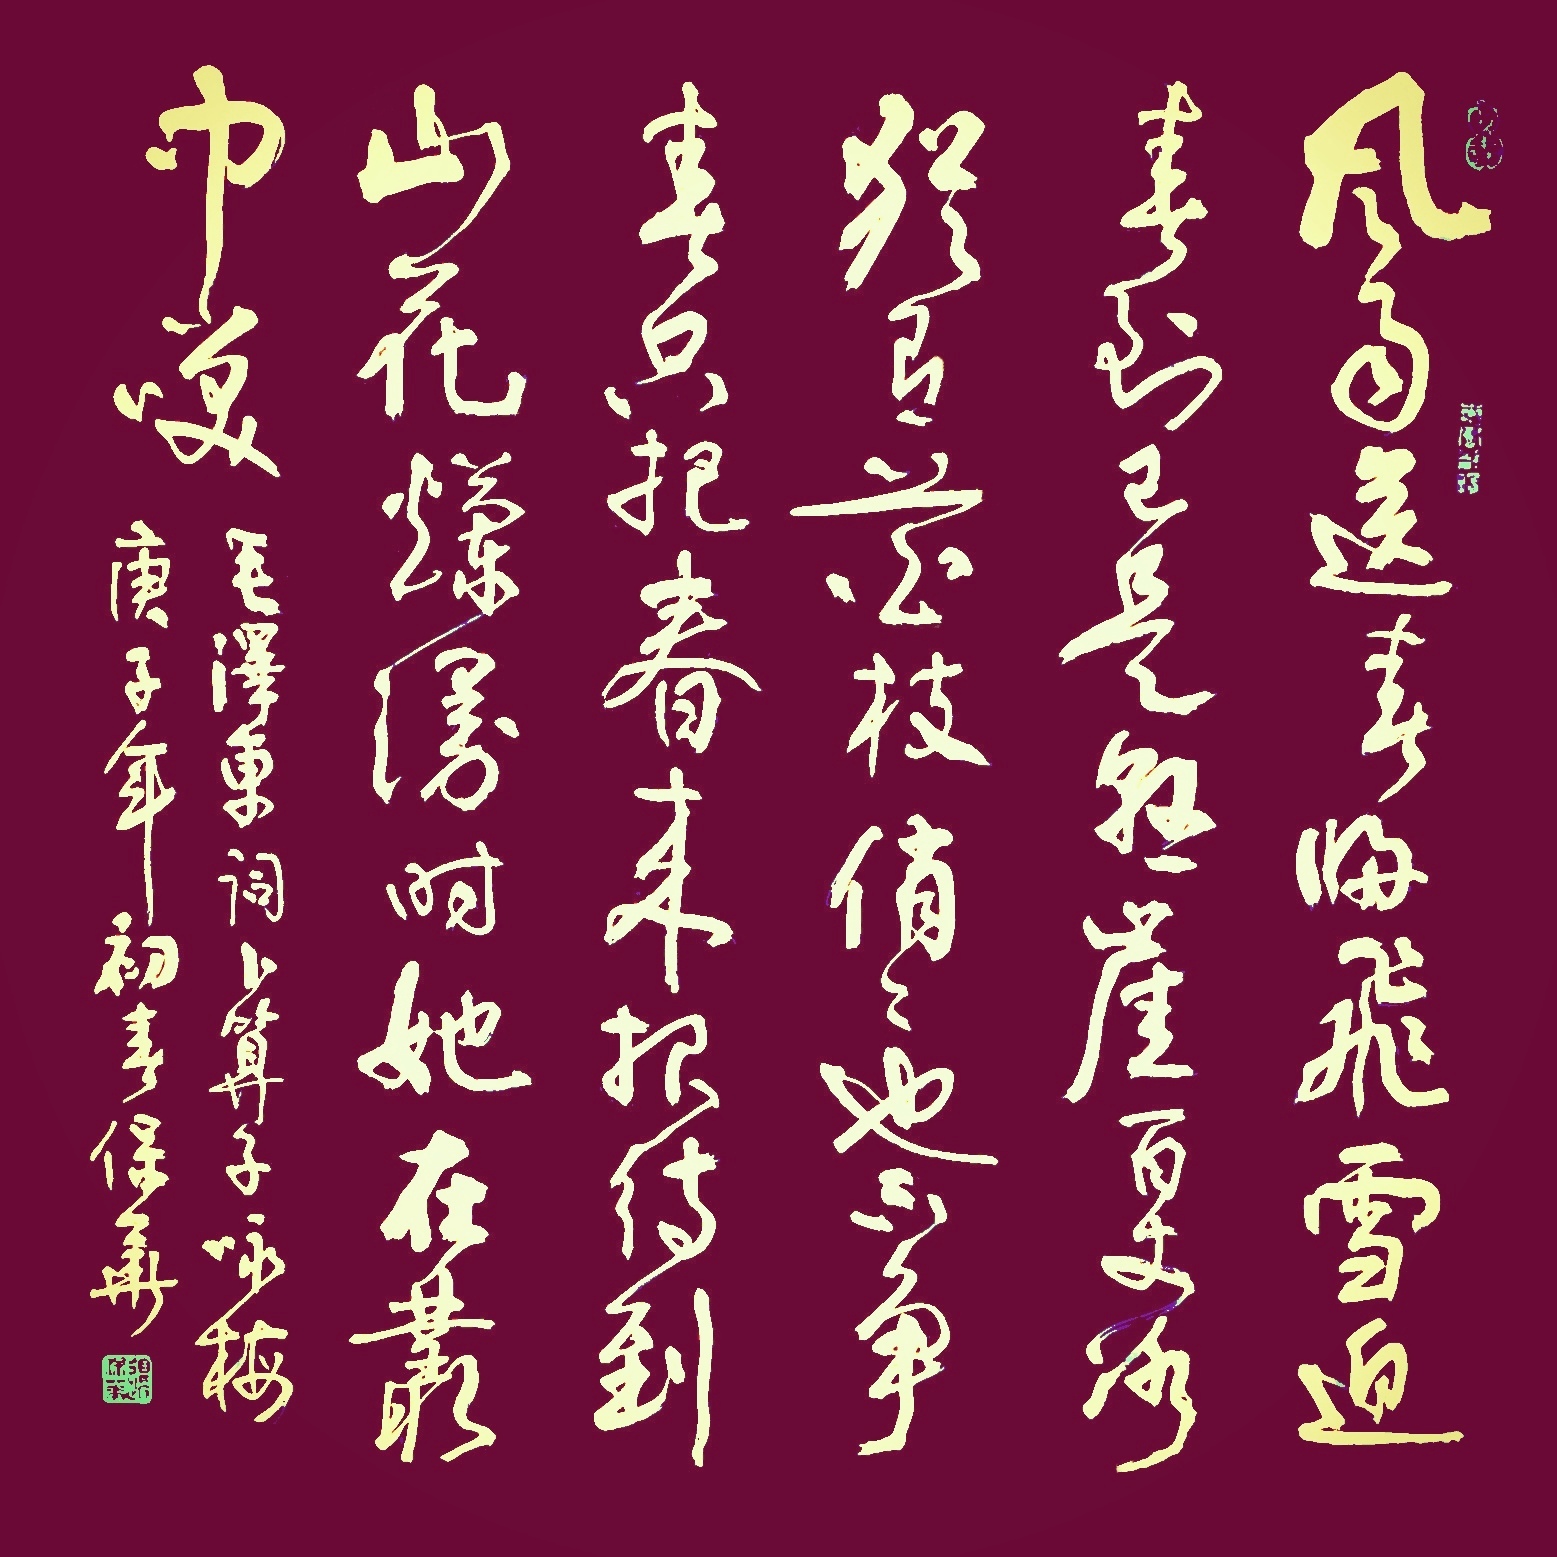 风雨送春歸飛雪迎
春到已是懸崖百丈冰
猶有花枝俏々也不争
春只把春来报待到
山花爛漫时她在叢
中笑
毛澤東词卜算子咏梅
庚子年初春保華